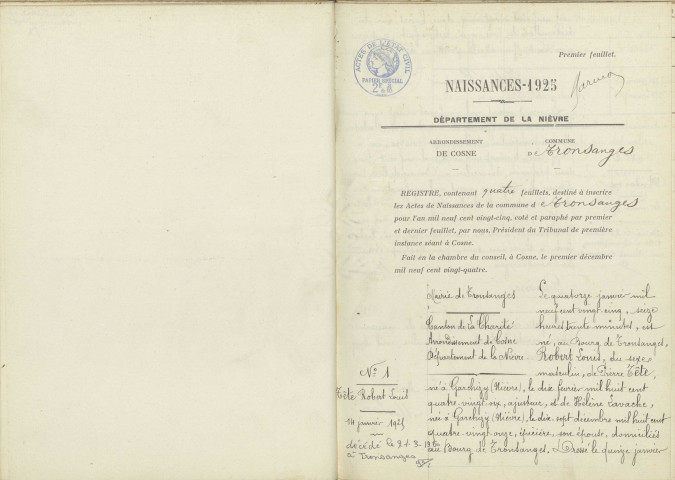 ACTES DE L'ETAT CIVIL
PAPIER SPÉCIAL
Premier feuillet.
NAISSANCES-1925
DÉPARTEMENT DE LA NIÈVRE
ARRONDISSEMENT
DE COSNE
COMMUNE
D Tronsanges
REGISTRE, contenant quatre feuillets, destiné à inscrire
les Actes de Naissances de la commune d Tronsanges
pour l'an mil neuf cent vingt-cinq, coté et paraphé par premier
et dernier feuillet, par nous, Président du Tribunal de première
instance séant à Cosne.
Fait en la chambre du conseil, à Cosne, le premier décembre
mil neuf cent vingt-quatre.
Mairie de Tronsanges
Canton de La Charité
Arrondissement de Cosne
Département de la Nièvre
No 1
Tête Robert Louis
14 janvier 1925
décédé le
à Tronsanges
Le quatorze janvier mil
neuf cent vingt cinq, seize
heures trente minutes, est
né, au Bourg de Tronsanges,
Robert Louis, du sexe
masculin, de Pierre Tête,
né à Garchizy (Nièvre), le dix février mil huit cent
quatre vingt six, ajusteur, et de Hélène Lavache,
née à Garchizy (Nièvre), le dix sept décembre mil huit cent
quatre vingt onze, épicière, son épouse, domiciliés
au Bourg de Tronsanges, Dressé le quinze janvier